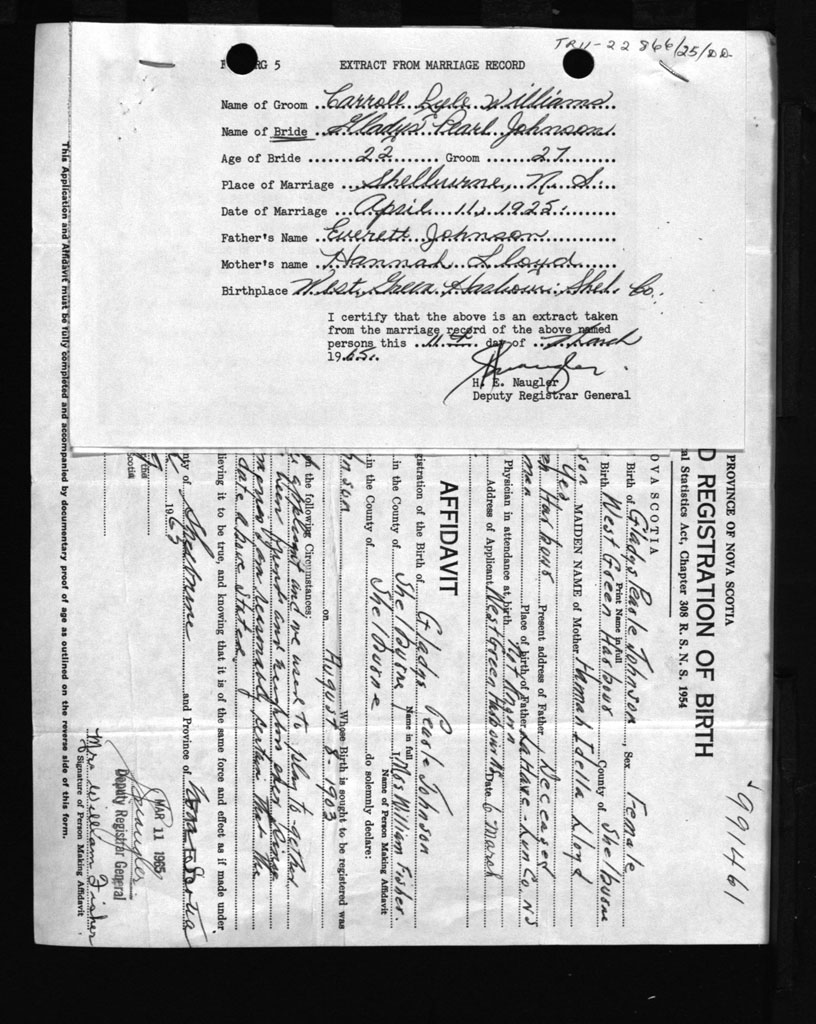 TR11-22 866/25/DD
RG 5 EXTRACT FROM MARRIAGE RECORD
Name of Groom ..Carroll Lyle Williams
Name of Bride ..Gladys Pearl Johnson.
Age of Bride ........22........ Groom .......27.......
Place of Marriage ...Shelburne, N. S...
Date of Marriage ...April 11, 1925..........
Father's Name ..Everett Johnson............
Mother's name ..Hannah Lloyd............
Birthplace West Green Harbour, Shel. Co.
I certify that the above is an extract taken
from the marriage record of the above named
persons this ..11th.. day of ...March
1965.
H. E. Naugler
Deputy Registrar General
991461
PROVINCE OF NOVA SCOTIA
D REGISTRATION OF BIRTH
al Statistics Act, Chapter 308 R. S. N. S. 1954
OVA SCOTIA
Birth of Gladys Pearle Johnson, Sex Female
Print Name in full
Birth West Green Harbour County of Shelburne
son MAIDEN NAME of Mother Hannah Idella Lloyd
Yes
en Harbour Present address of Father Deceased
man Place of birth of Father LaHave - Lun Co. NS
Physician in attendance at birth Not Known
Address of Applicant West Green Harbour NS Date 6 March
AFFIDAVIT
gistration of the Birth of Gladys Pearle Johnson
Name in full
in the County of Shelburne I, Mrs William Fisher
Name of Person Making Affidavit
in the County of Shelburne do solemnly declare:
Whose Birth is sought to be registered was
nson on August 8 - 1903
h the following Circumstances:
applicant and we used to play together
been friends and neighbors ever since
I am reasonably certain that the
date above stated.
lieving it to be true, and knowing that it is of the same force and effect as if made under
nty of Shelburne and Province of Nova Scotia
1965
the
Scotia
Naugler
MAR 11 1965
Deputy Registrar General
Mrs William Fisher
Signature of Person Making Affidavit
This Application and Affidavit must be fully completed and accompanied by documentary proof of age as outlined on the reverse side of this form.